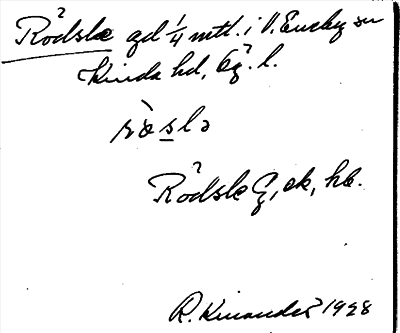 Rödsle gd 1/4 mtl. i V. Eneby sn
Kinda hd, Ög. l.
ròslə
Rödsle G, ek, hb.
R. Kinander 1928